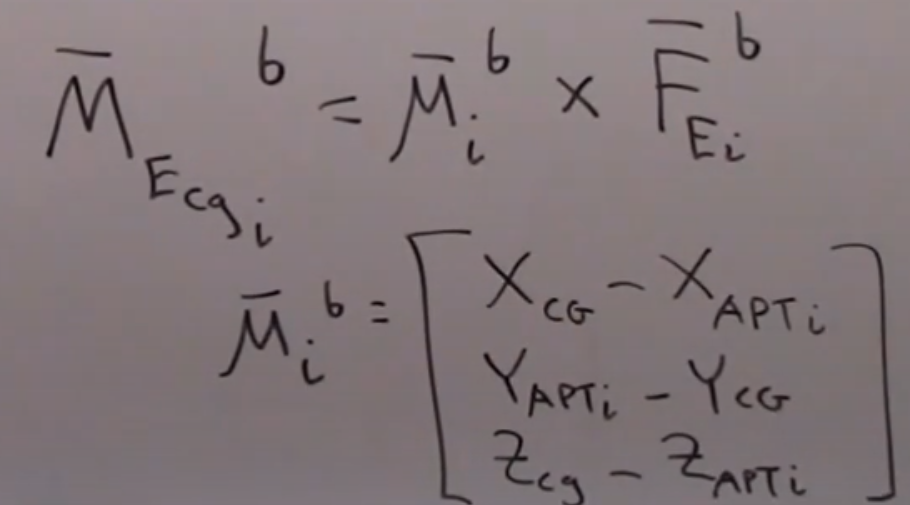 M̄_{E_{cg_i}}^b = μ̄_i^b × F̄_{E_i}^b
μ̄_i^b = [ X_{CG} - X_{APT_i}
Y_{APT_i} - Y_{CG}
Z_{cg} - Z_{APT_i} ]